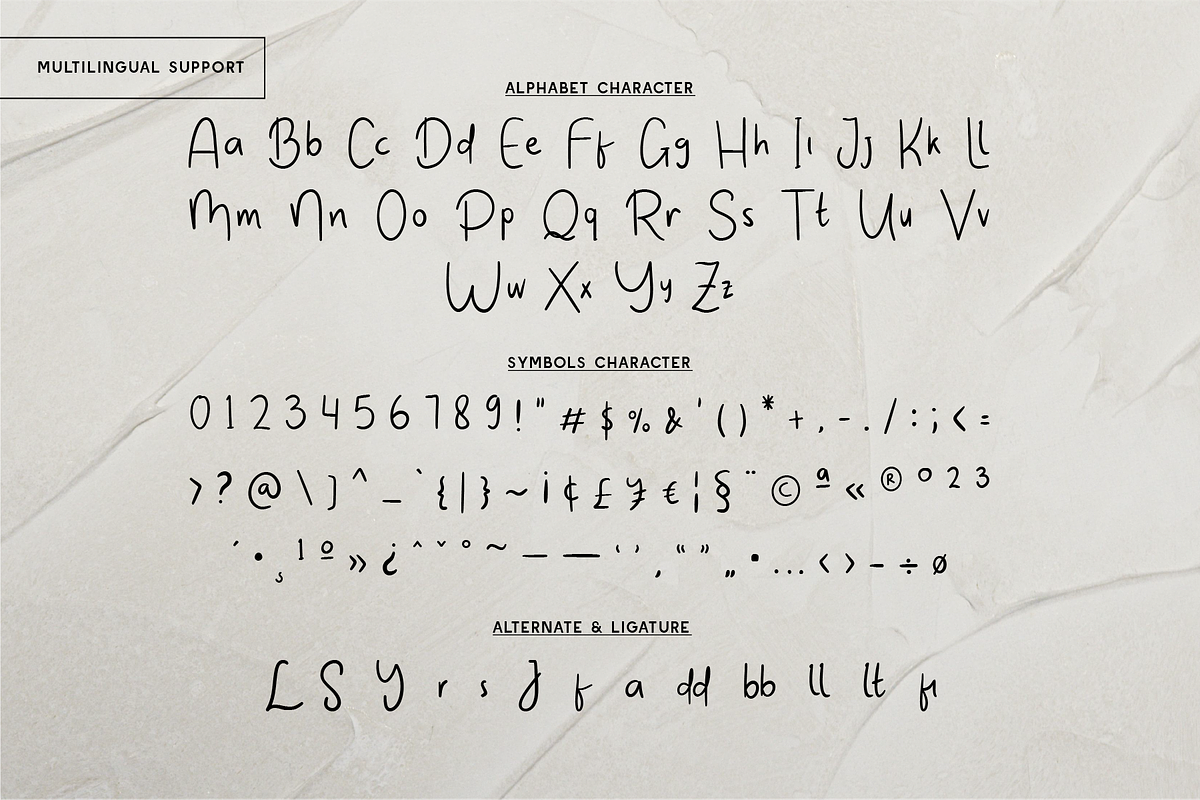 MULTILINGUAL SUPPORT
ALPHABET CHARACTER
Aa Bb Cc Dd Ee Ff Gg Hh Ii Jj Kk Ll
Mm Nn Oo Pp Qq Rr Ss Tt Uu Vv
Ww Xx Yy Zz
SYMBOLS CHARACTER
0 1 2 3 4 5 6 7 8 9 ! " # $ % & ' ( ) * + , - . / : ; < =
> ? @ \ ] ^ _ ` { | } ~ ¡ ¢ £ ¥ € ¦ § ¨ © ª « ® ° ² ³
´ • ¸ ¹ º » ¿ ˆ ˇ ˚ ˜ – — ‘ ’ ‚ “ ” „ • … ‹ › − ÷ ø
ALTERNATE & LIGATURE
L S Y r s J f a dd bb ll lt fi